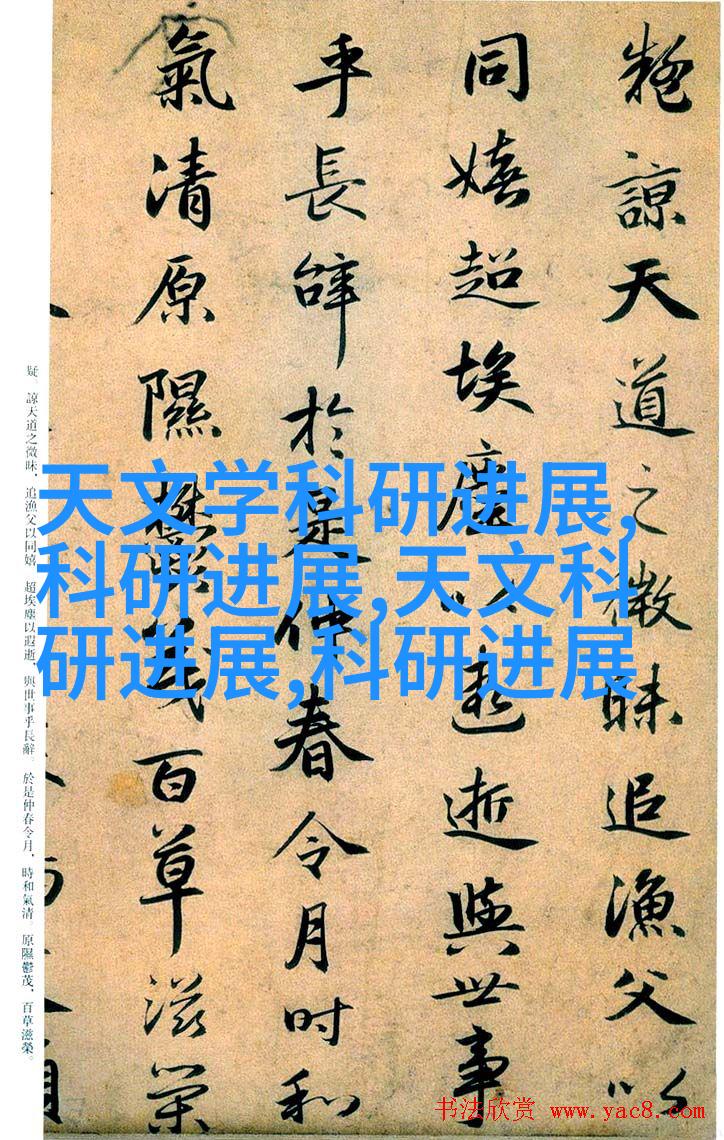 疑諒天道之微昧追漁父以
同嬉超埃塵以遐逝與世事
乎長辭於是仲春令月時和
氣清原隰鬱茂百草滋榮
疑。諒天道之微昧,追漁父以同嬉。超埃塵以遐逝,與世事乎長辭。於是仲春令月,時和氣清。原隰鬱茂,百草滋榮。
天文学科研进展,
科研进展,天文科
研进展,科研进展
书法欣赏 www.yac8.com